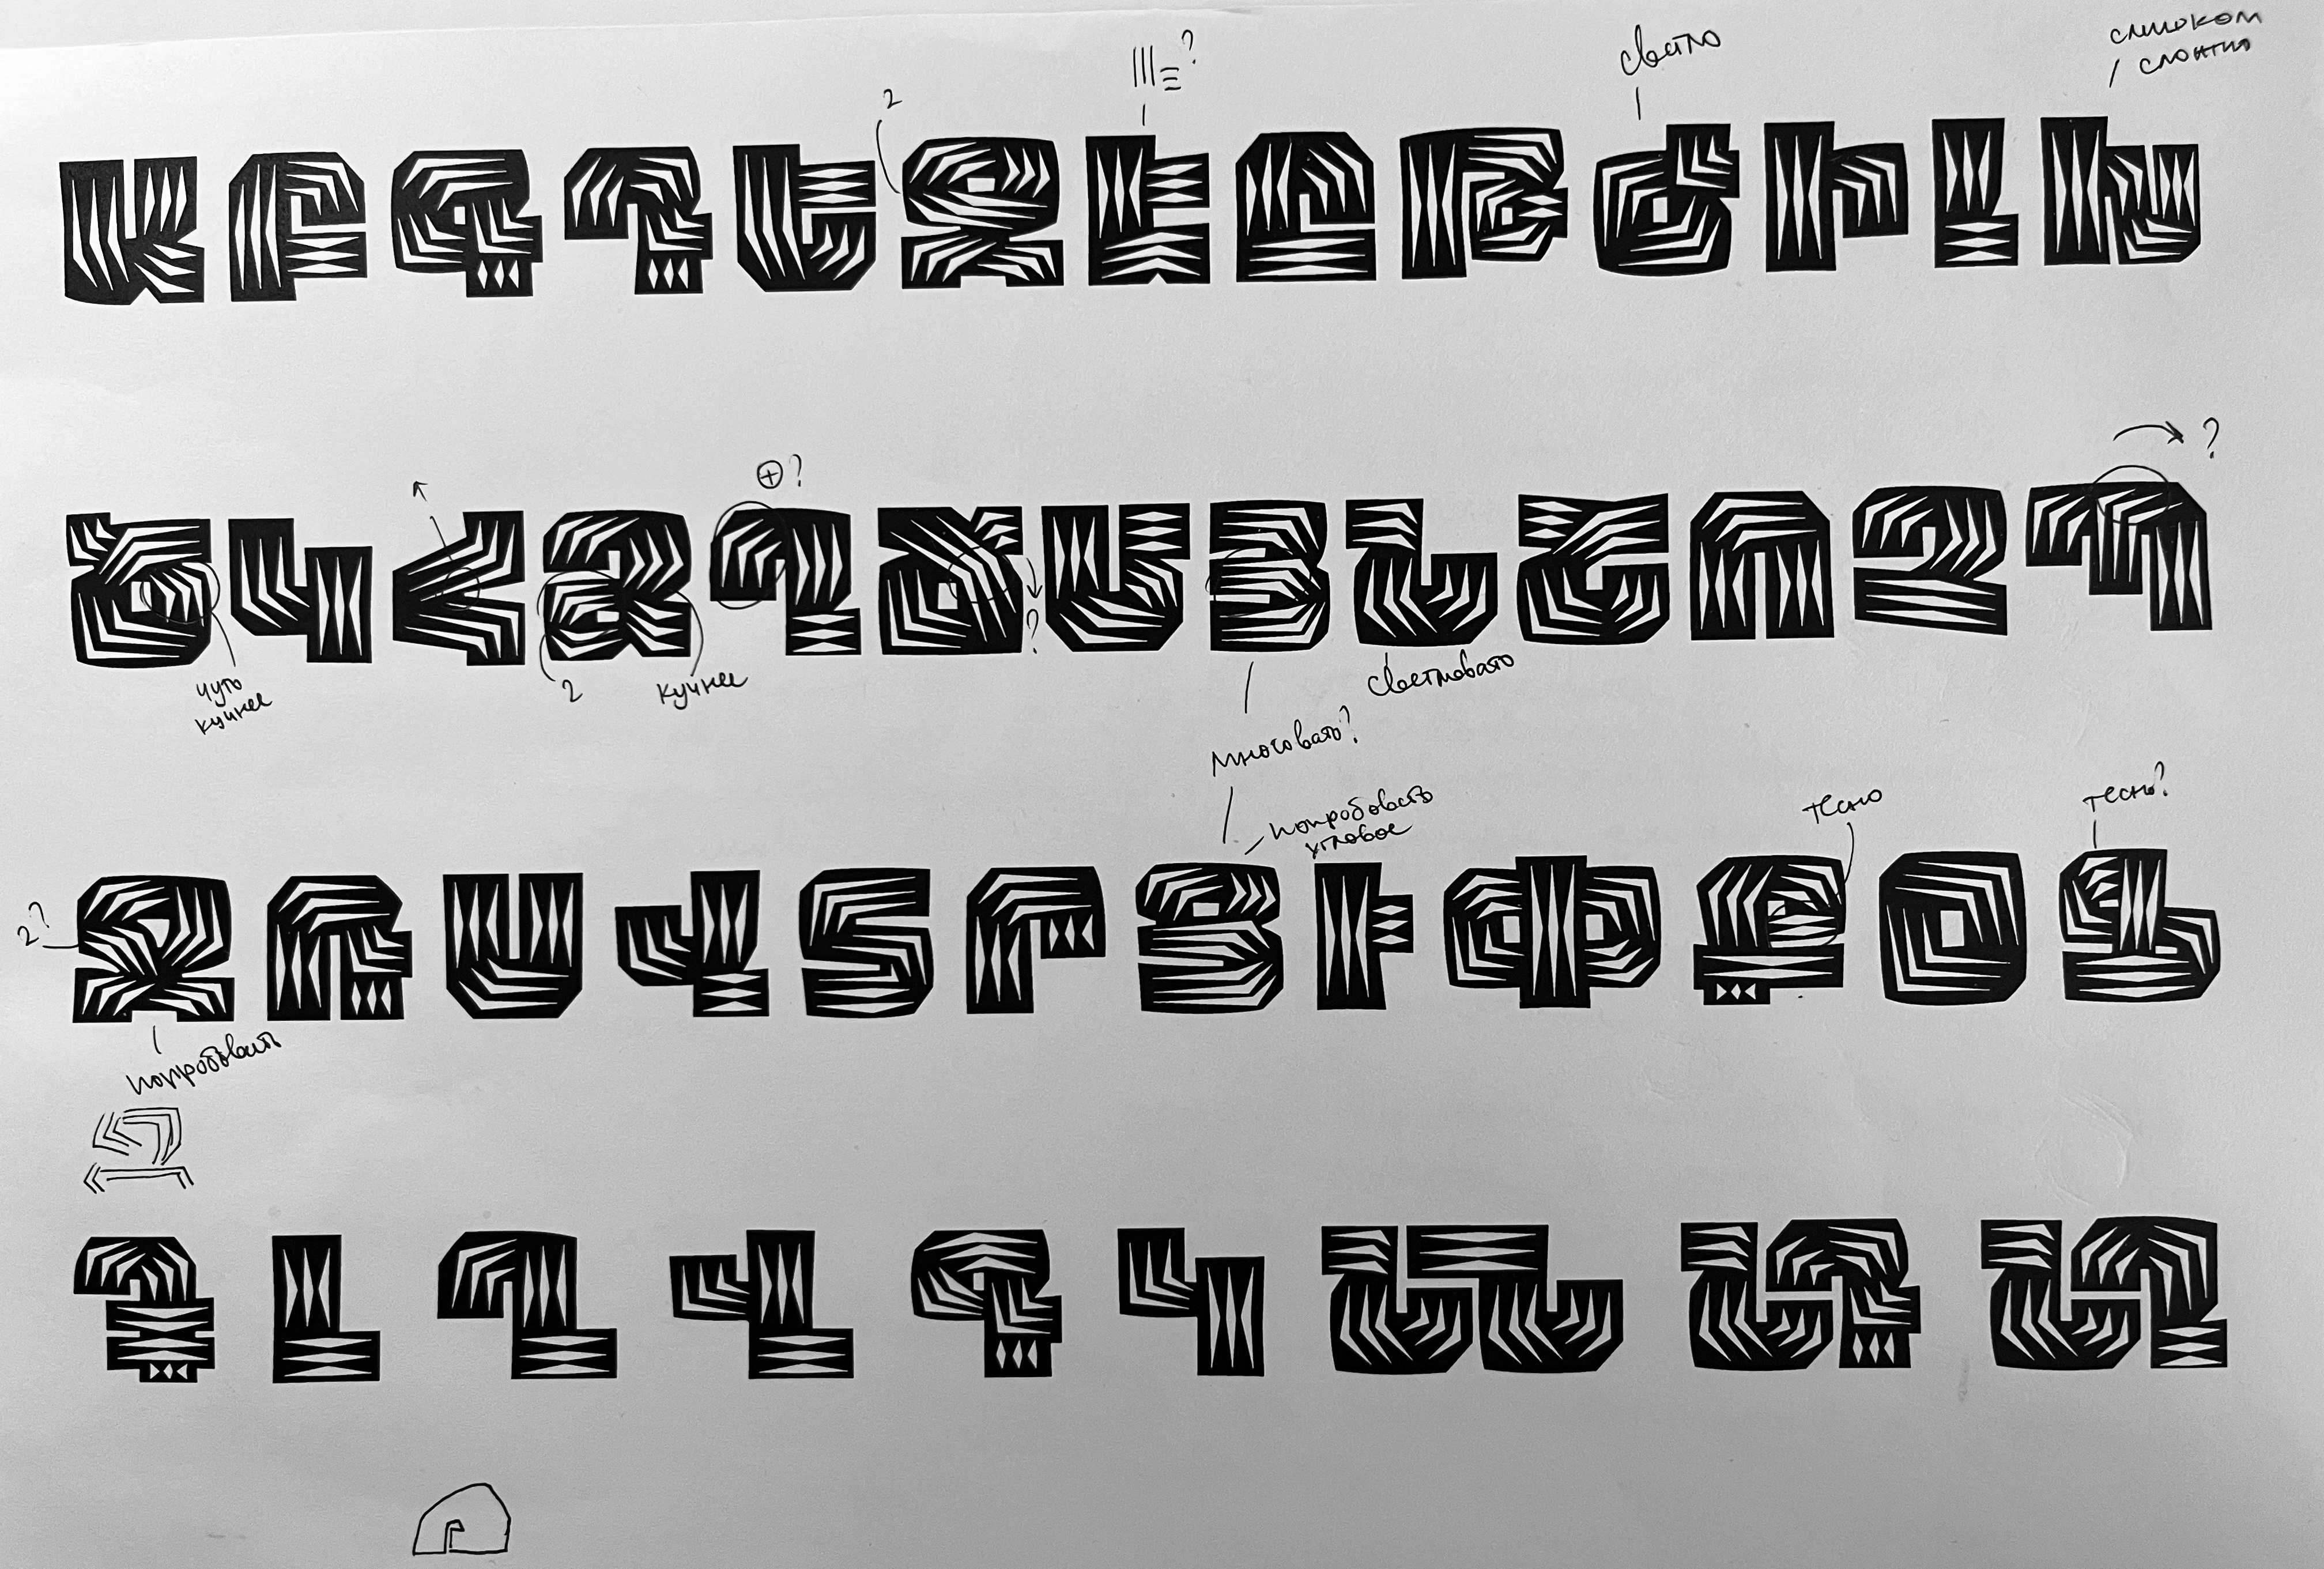 слишком
сложно
светло
?
2
Ա Բ Գ Դ Ե Զ Է Ը Թ Ժ Ի Լ Խ
?
⊕?
Ծ Կ Հ Ձ Ղ Ճ Մ Յ Ն Շ Ո Չ Պ
?
чуть
кучнее
2
кучнее
светловато
многовато?
попробовать
угловое
тесно
тесно?
2?
Ջ Ռ Ս Վ Տ Ր Ց Ւ Փ Ք Օ Ֆ
попробовать